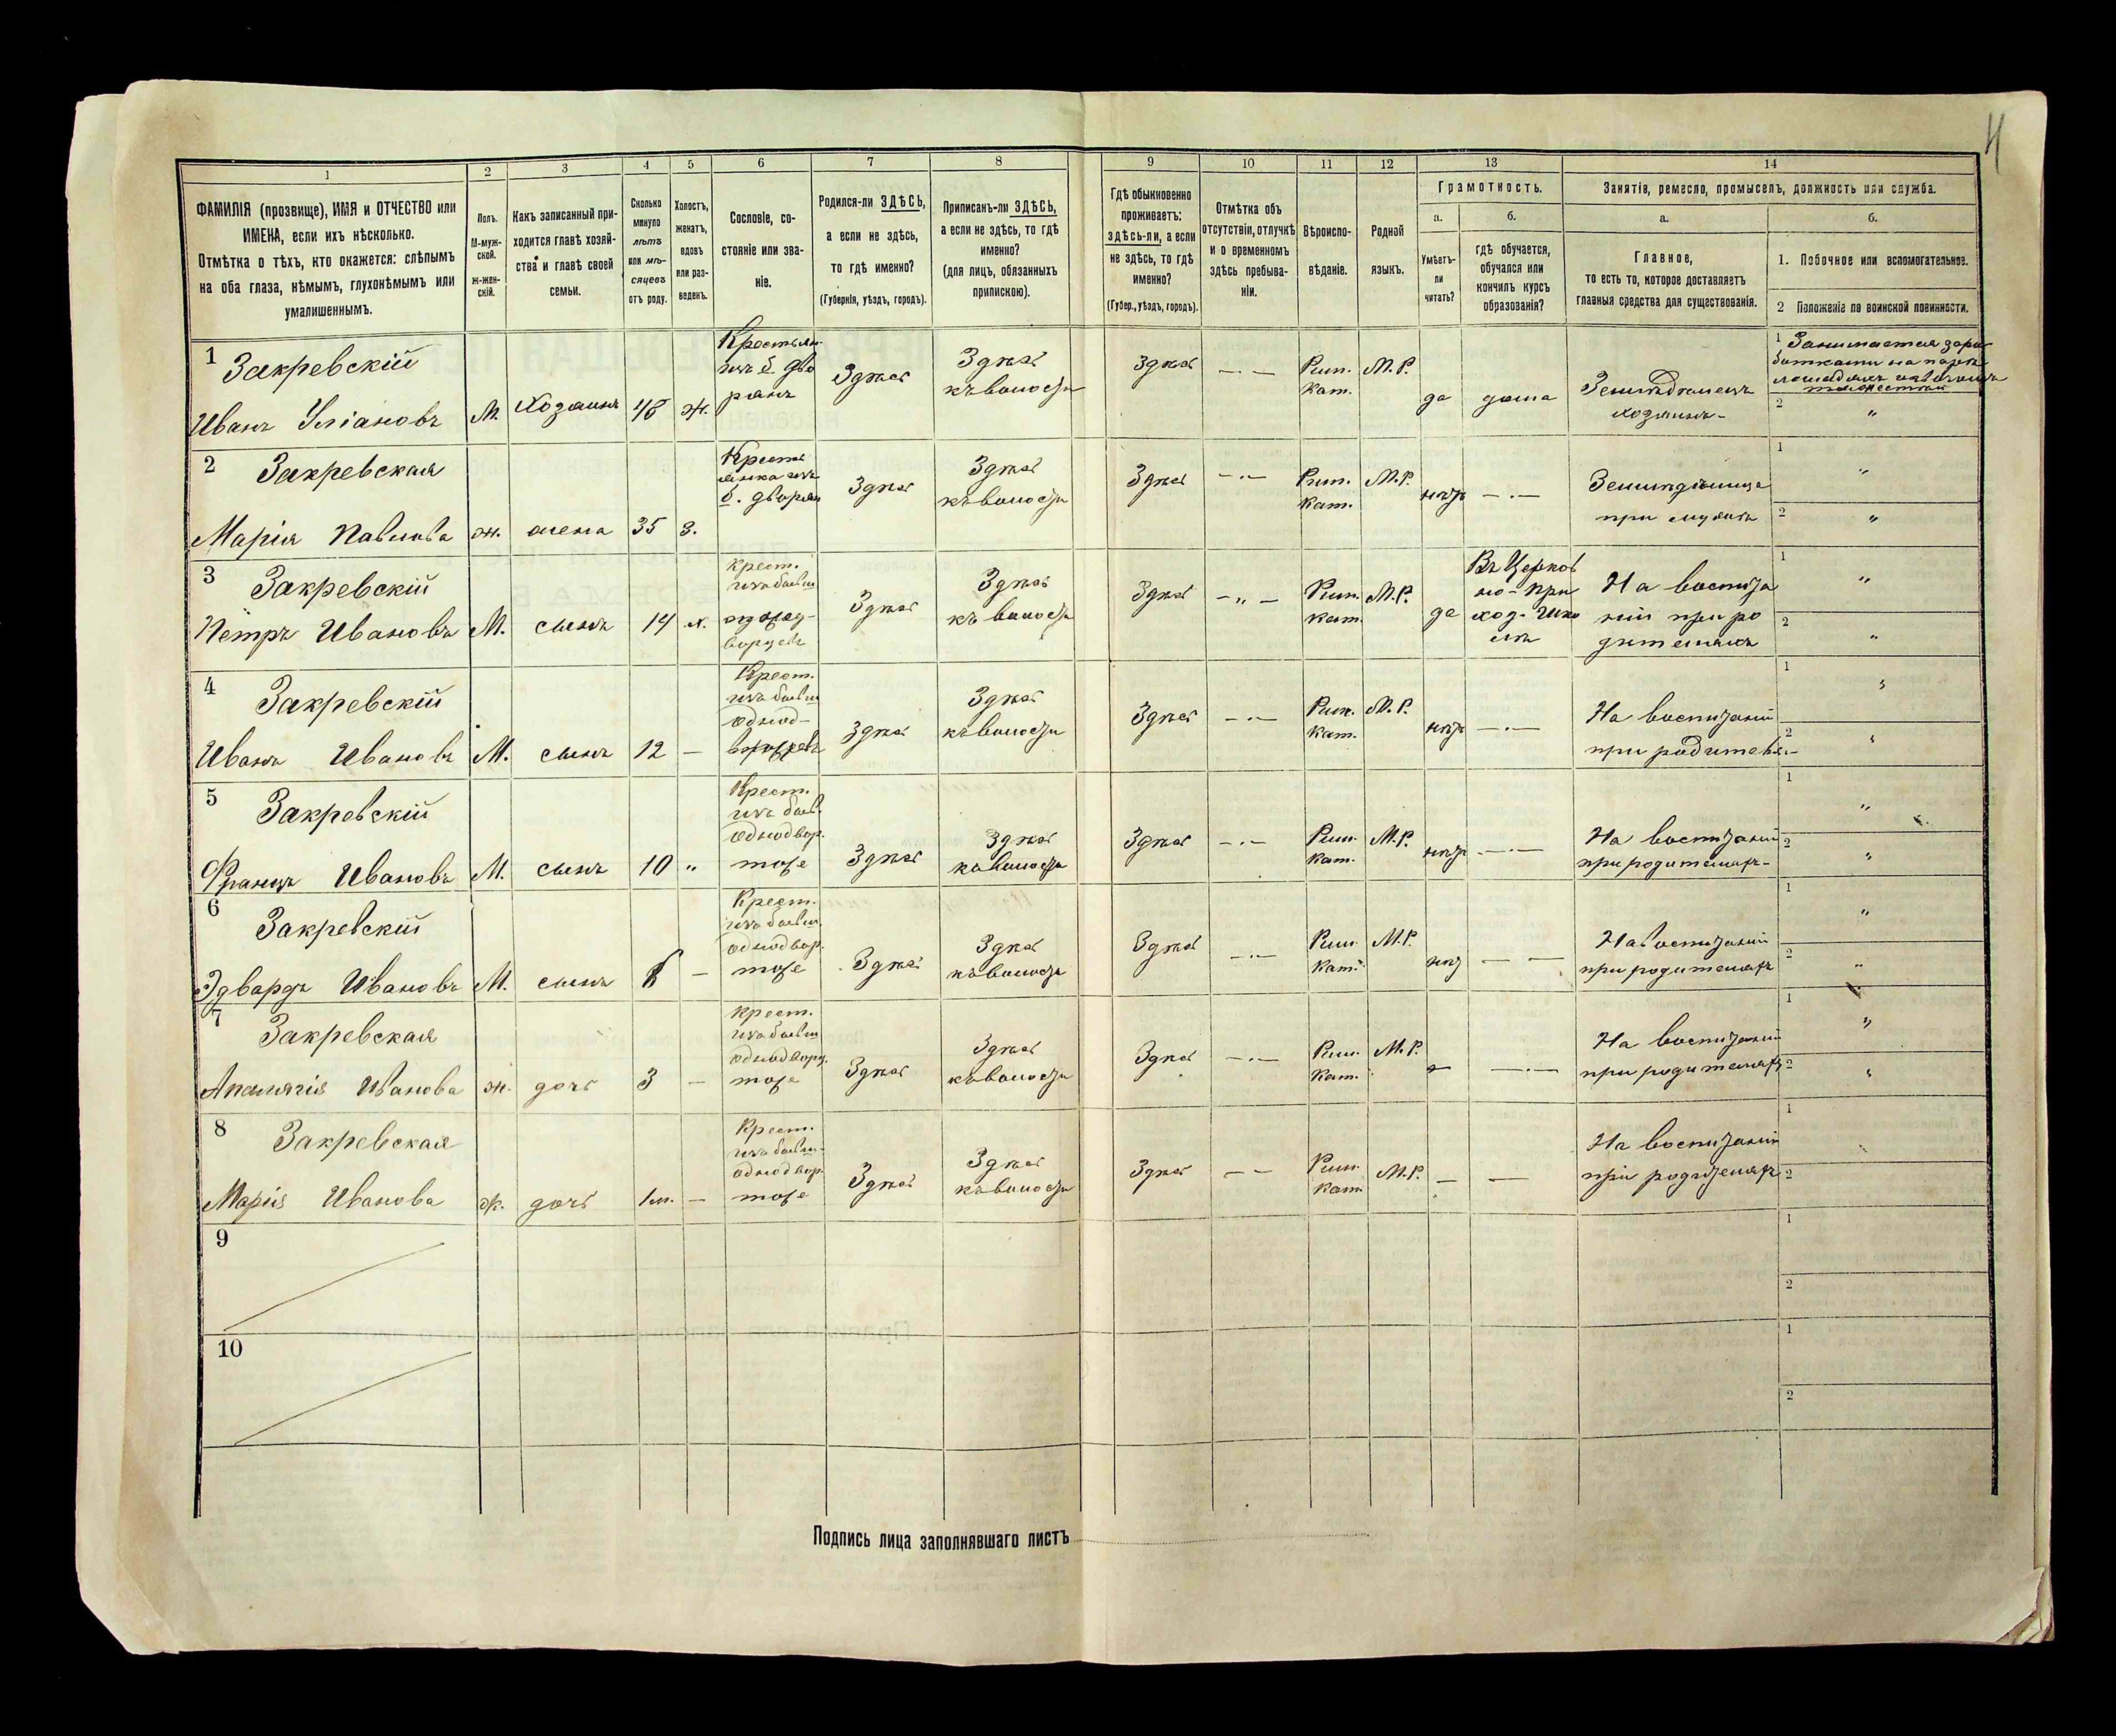 4
1 2 3 4 5 6 7 8 9 10 11 12 13 14
ФАМИЛІЯ (прозвище), ИМЯ и ОТЧЕСТВО или
ИМЕНА, если ихъ нѣсколько.
Отмѣтка о тѣхъ, кто окажется: слѣпымъ
на оба глаза, нѣмымъ, глухонѣмымъ или
умалишеннымъ.
Полъ.
М-муж-
ской.
ж-жен-
скій.
Какъ записанный при-
ходится главѣ хозяй-
ства и главѣ своей
семьи.
Сколько
минуло
лѣтъ
или мѣ-
сяцевъ
отъ роду.
Холостъ,
женатъ,
вдовъ
или раз-
веденъ.
Сословіе, со-
стояніе или зва-
ніе.
Родился-ли ЗДѢСЬ,
а если не здѣсь,
то гдѣ именно?
(Губернія, уѣздъ, городъ).
Приписанъ-ли ЗДѢСЬ,
а если не здѣсь, то гдѣ
именно?
(для лицъ, обязанныхъ
припискою).
Гдѣ обыкновенно
проживаетъ:
здѣсь-ли, а если
не здѣсь, то гдѣ
именно?
(Губер., уѣздъ, городъ).
Отмѣтка объ
отсутствіи, отлучкѣ
и о временномъ
здѣсь пребыва-
ніи.
Вѣроиспо-
вѣданіе.
Родной
языкъ.
Грамотность.
а.
Умѣетъ-
ли
читать?
б.
гдѣ обучается,
обучался или
кончилъ курсъ
образованія?
Занятіе, ремесло, промыселъ, должность или служба.
а.
Главное,
то есть то, которое доставляетъ
главныя средства для существованія.
б.
1. Побочное или вспомогательное.
2 Положеніе по воинской повинности.
1 Закревскій
Иванъ М. Хозяинъ 48 ж.
Крестьян.
изъ б. дво
рянъ
Здѣсь
Здѣсь
къ волости
Здѣсь
—·—
Рим.
кат.
М.Р.
да
дома
Земледѣлецъ
хозяинъ-
1 Занимается зара
2 "
2 Закревская
Марія Павлова ж. жена 35 з.
Крестья
янка изъ
б. дворян
Здѣсь
Здѣсь
къ волости
Здѣсь
—·—
Рим.
кат.
М.Р.
нѣтъ
—·—
при мужѣ
1 "
2 "
3 Закревскій
Петръ Ивановъ М. сынъ 14 х.
Крест.
изъ бывш
однод-
ворцевъ
Здѣсь
Здѣсь
къ волости
Здѣсь
—„—
Рим.
кат.
М.Р.
да
Въ Церков
но-При
ход. Шко
лѣ
На воспита
ніи при ро
дителяхъ
1 "
2 "
4 Закревскій
Иванъ Ивановъ М. сынъ 12 —
Крест.
изъ бывш
однод-
ворцевъ
Здѣсь
Здѣсь
къ волости
Здѣсь
—·—
Рим.
кат.
М.Р.
нѣтъ
—·—
На воспитаніи
при родителя.-
1 "
2 "
5 Закревскій
Францъ Ивановъ М. сынъ 10 "
Крест.
изъ бывш.
однодвор.
тоже
Здѣсь
Здѣсь
къ волости
Здѣсь
—·—
Рим.
кат.
М.Р.
нѣтъ
—·—
На воспитаніи
при родителяхъ-
1 "
2 "
6 Закревскій
Эдвардъ Ивановъ М. сынъ —
Крест.
изъ бывш.
однодвор.
тоже
Здѣсь
Здѣсь
къ волости
Здѣсь
—·—
Рим.
кат.
М.Р.
нѣт
— —
На воспитаніи
при родителяхъ
1 "
2 "
7 Закревская
Ивановa ж. дочь 3 —
Крест.
изъ бывш
однодворц.
тоже
Здѣсь
Здѣсь
къ волости
Здѣсь
—·—
Рим.
кат.
М.Р.
—
—·—
На воспитаніи
при родителяхъ
1 "
2 "
8 Закревская
Марія Иванова ж. дочь 1м. —
Крест.
изъ бывш.
однодвор.
тоже
Здѣсь
Здѣсь
къ волости
Здѣсь
— —
Рим.
кат.
М.Р.
—
—
На воспитаніи
при родителяхъ
1
2
9
1
2
10
1
2
Подпись лица заполнявшаго листъ